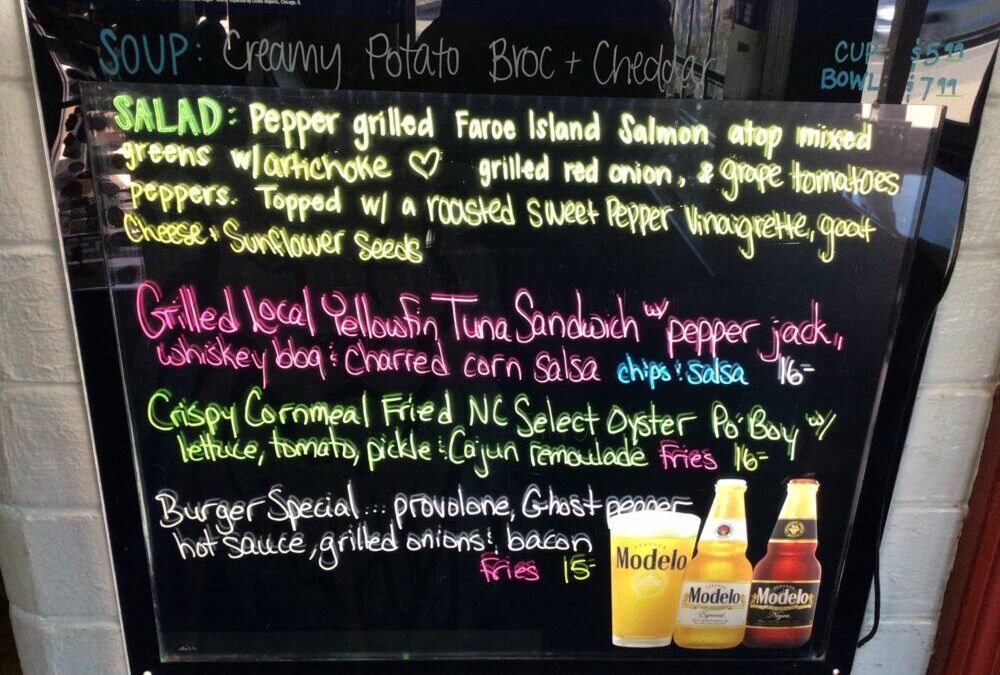 SOUP: Creamy Potato Broc + Cheddar
CUP: $5.99
BOWL: $7.99
SALAD: Pepper grilled Faroe Island Salmon atop mixed
greens w/artichoke ♡ grilled red onion, & grape tomatoes
peppers. Topped w/ a roasted sweet Pepper Vinaigrette, goat
Cheese & Sunflower Seeds
Grilled Local Yellowfin Tuna Sandwich w/ pepper jack,
whiskey bbq & Charred corn salsa chips & salsa 16-
Crispy Cornmeal Fried NC Select Oyster Po' Boy w/
lettuce, tomato, pickle & Cajun remoulade Fries 16-
Burger Special... provolone, Ghost pepper
hot sauce, grilled onions & bacon
Fries 15-
Modelo
Modelo
Especial
Modelo
Negra